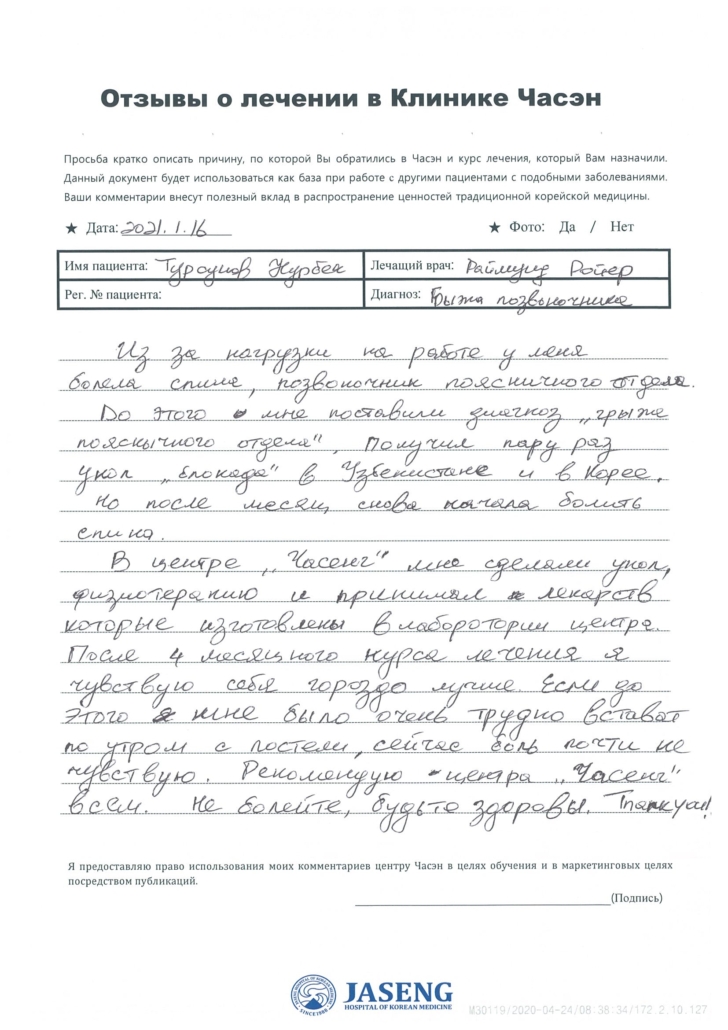 Отзывы о лечении в Клинике Часэн
Просьба кратко описать причину, по которой Вы обратились в Часэн и курс лечения, который Вам назначили.
Данный документ будет использоваться как база при работе с другими пациентами с подобными заболеваниями.
Ваши комментарии внесут полезный вклад в распространение ценностей традиционной корейской медицины.
★ Дата: 2021.1.16 ★ Фото: Да / Нет
Имя пациента: Турсунов Нурбек Лечащий врач: Раймунд Ройер
Рег. № пациента: Диагноз: Грыжа позвоночника
Из за нагрузки на работе у меня
болела спина, позвоночник поясничного отдела.
До этого мне поставили диагноз „грыже
пояскычного отдела", Получил пару раз
укол „блокада" в Узбекистане и в Корее.
Но после месяц снова начала болить
спина.
В центре „Часенг" мне сделали укол,
физиотерапию и принимал лекарств
которые изготовлены в лаборотории центра.
После 4 месяцного курса лечения я
чувствую себя гороздо лучше. Если до
этого мне было очень трудно встават
по утром с постели, сейчас боль почти не
чувствую. Рекомендую центра „Часенг"
всем. Не болейте, будьте здоровы. Thank you!
Я предоставляю право использования моих комментариев центру Часэн в целях обучения и в маркетинговых целях
посредством публикаций.
(Подпись)
JASENG
HOSPITAL OF KOREAN MEDICINE
SINCE 1988
M30119/2020-04-24/08:38:34/172.2.10.127